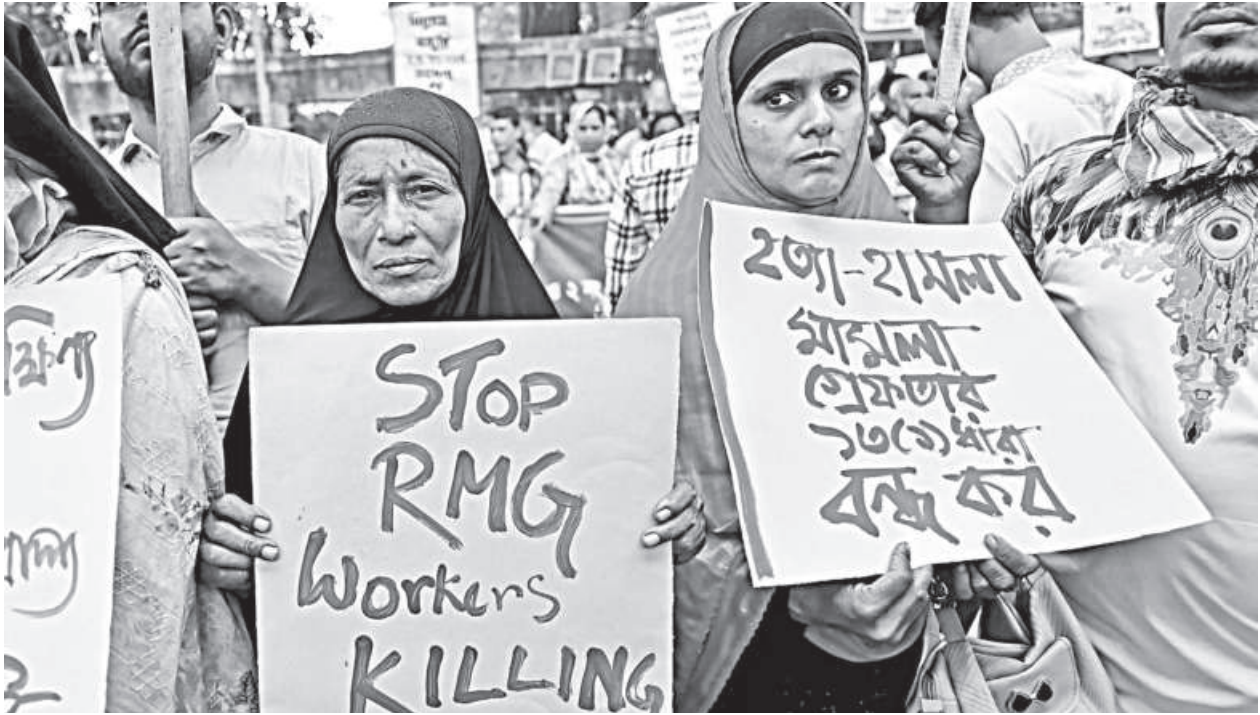 STOP
RMG
Workers
KILLING
হত্যা-হামলা
মামলা
গ্রেফতার
১৩(১) ধারা
বন্ধ কর